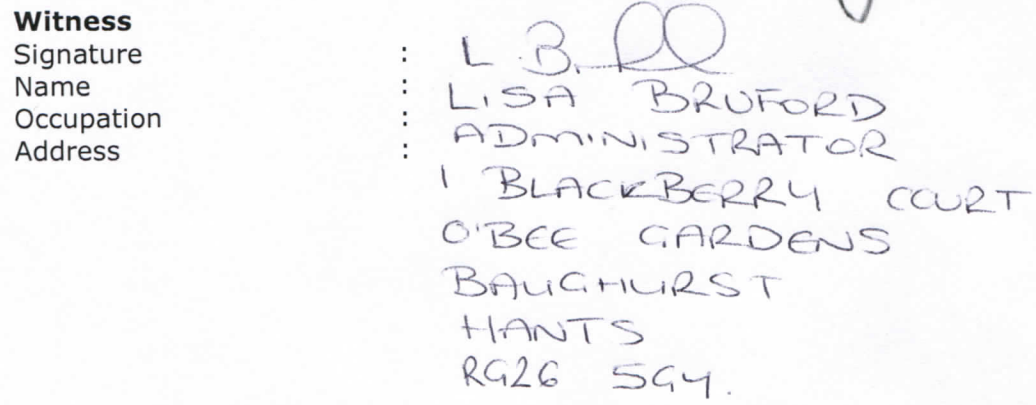 Witness
Signature : L.B.
Name : LISA BRUFORD
Occupation : ADMINISTRATOR
Address :
1 BLACKBERRY COURT
O'BEE GARDENS
BAUGHURST
HANTS
RG26 5GY.